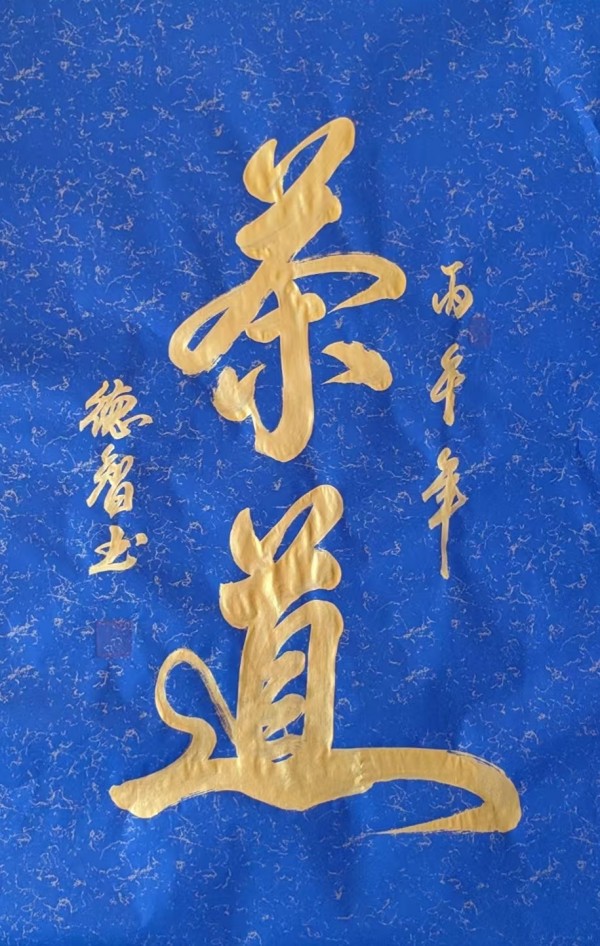 丙午年
茶道
德智书